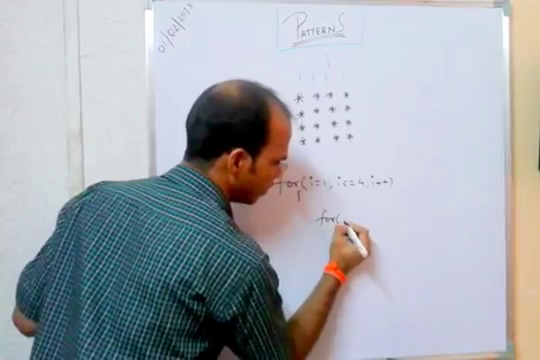 01/02/2023
PATTERNS
* * * *
* * * *
* * * *
* * * *
for(i=1, i<=4, i++)
{
for(